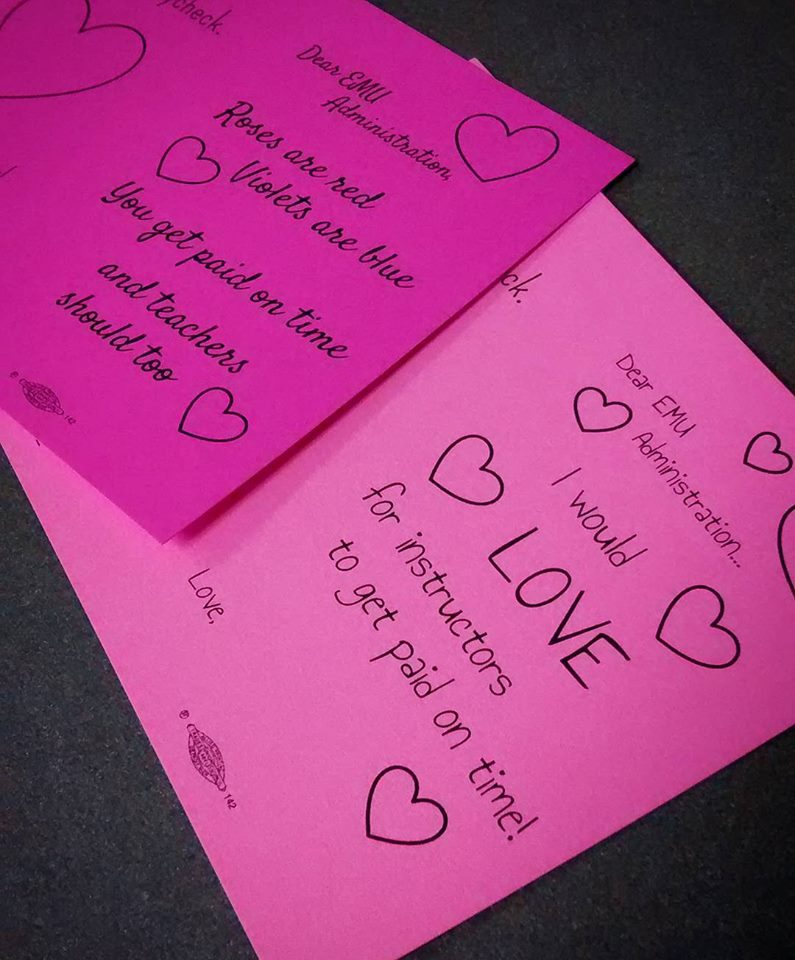 ycheck.
Dear EMU
Administration,
Roses are red
Violets are blue
You get paid on time
and teachers
should too
142
ck.
Dear EMU
Administration...
I would
LOVE
for instructors
to get paid on time!
Love,
142